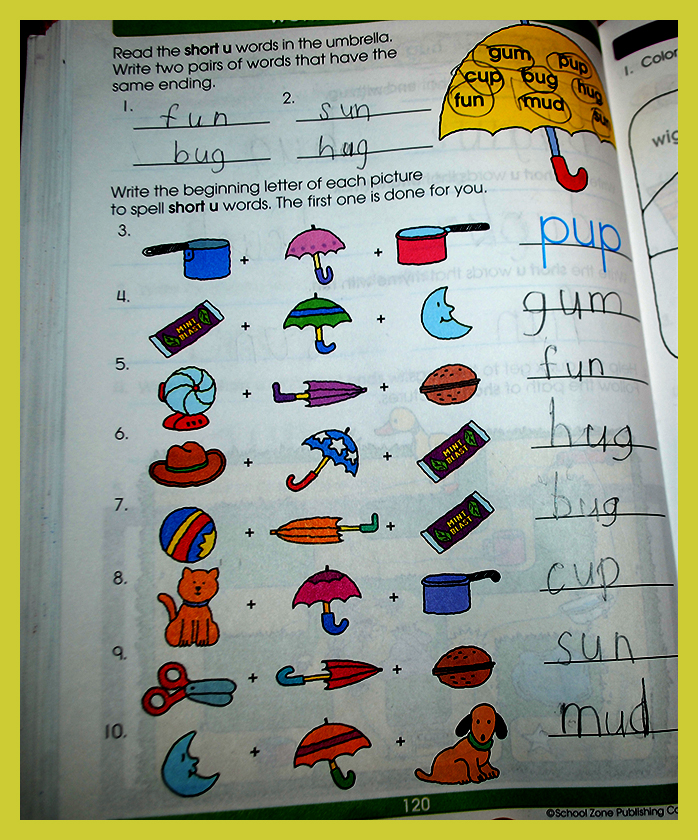 Read the short u words in the umbrella.
Write two pairs of words that have the
same ending.
1. fun
bug
2. sun
hug
gum
pup
cup
bug
hug
fun
mud
sun
Write the beginning letter of each picture
to spell short u words. The first one is done for you.
3. + + pup
4. MINT BLAST + + gum
5. + + fun
6. + + MINT BLAST hug
7. + + MINT BLAST bug
8. + + cup
9. + + sun
10. + + mud
120
©School Zone Publishing Co
1. Color
wig